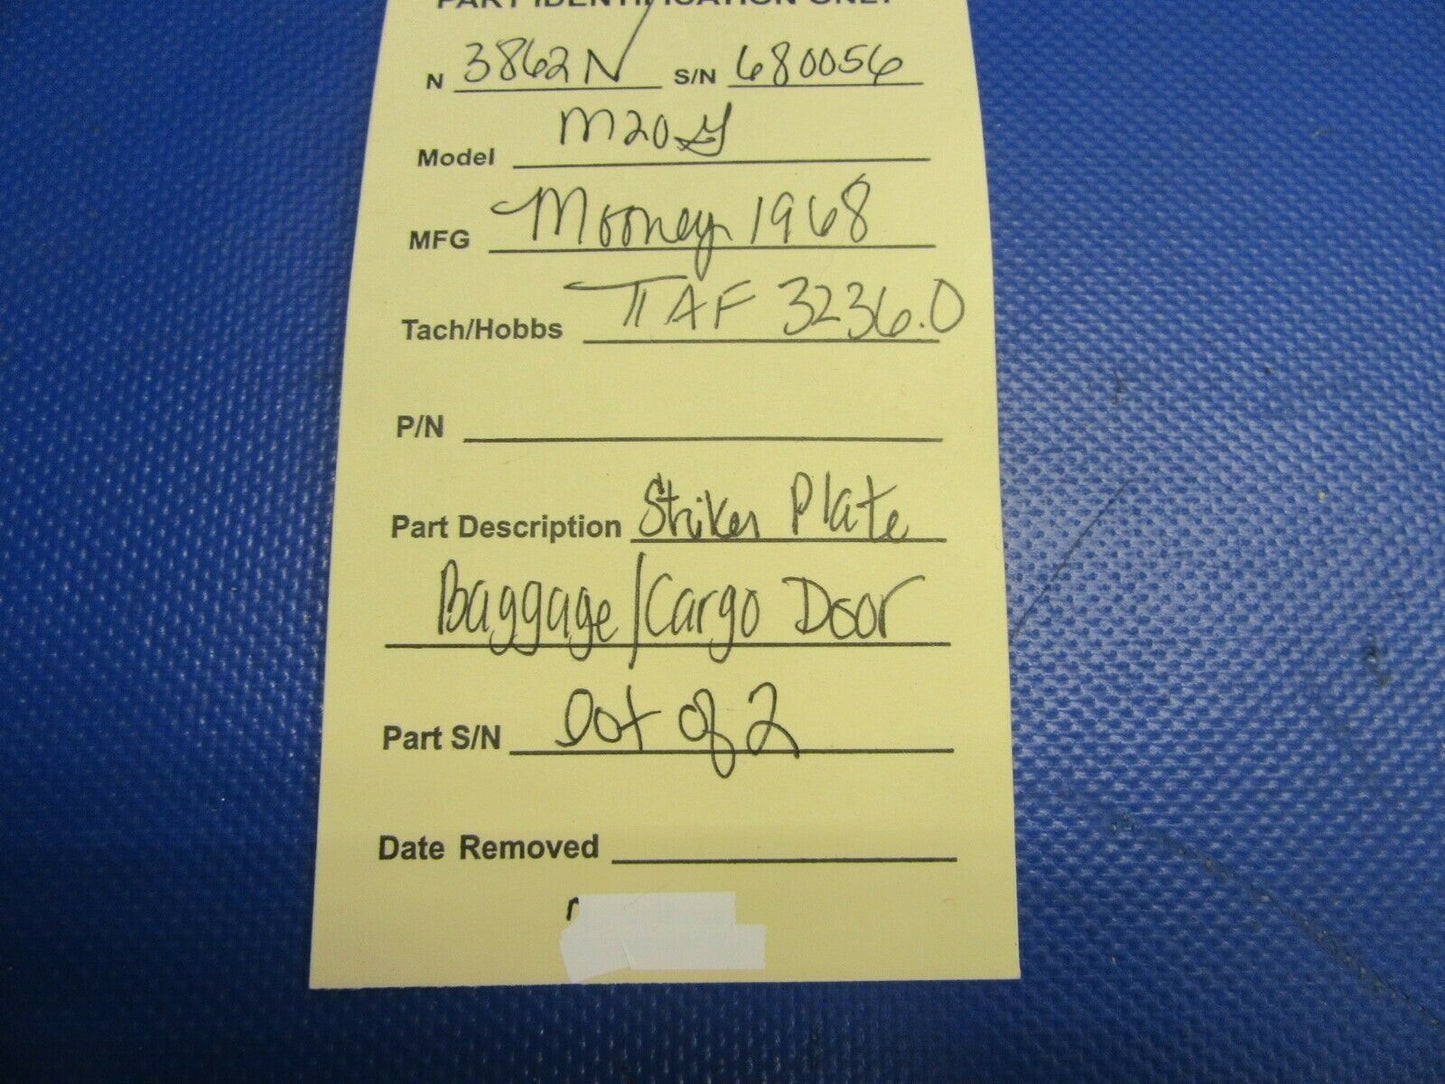 PART IDENTIFICATION ONLY
N 3862N S/N 680056
Model M20G
MFG Mooney 1968
Tach/Hobbs TTAF 3236.0
P/N
Part Description Striker Plate
Baggage/Cargo Door
Part S/N lot of 2
Date Removed